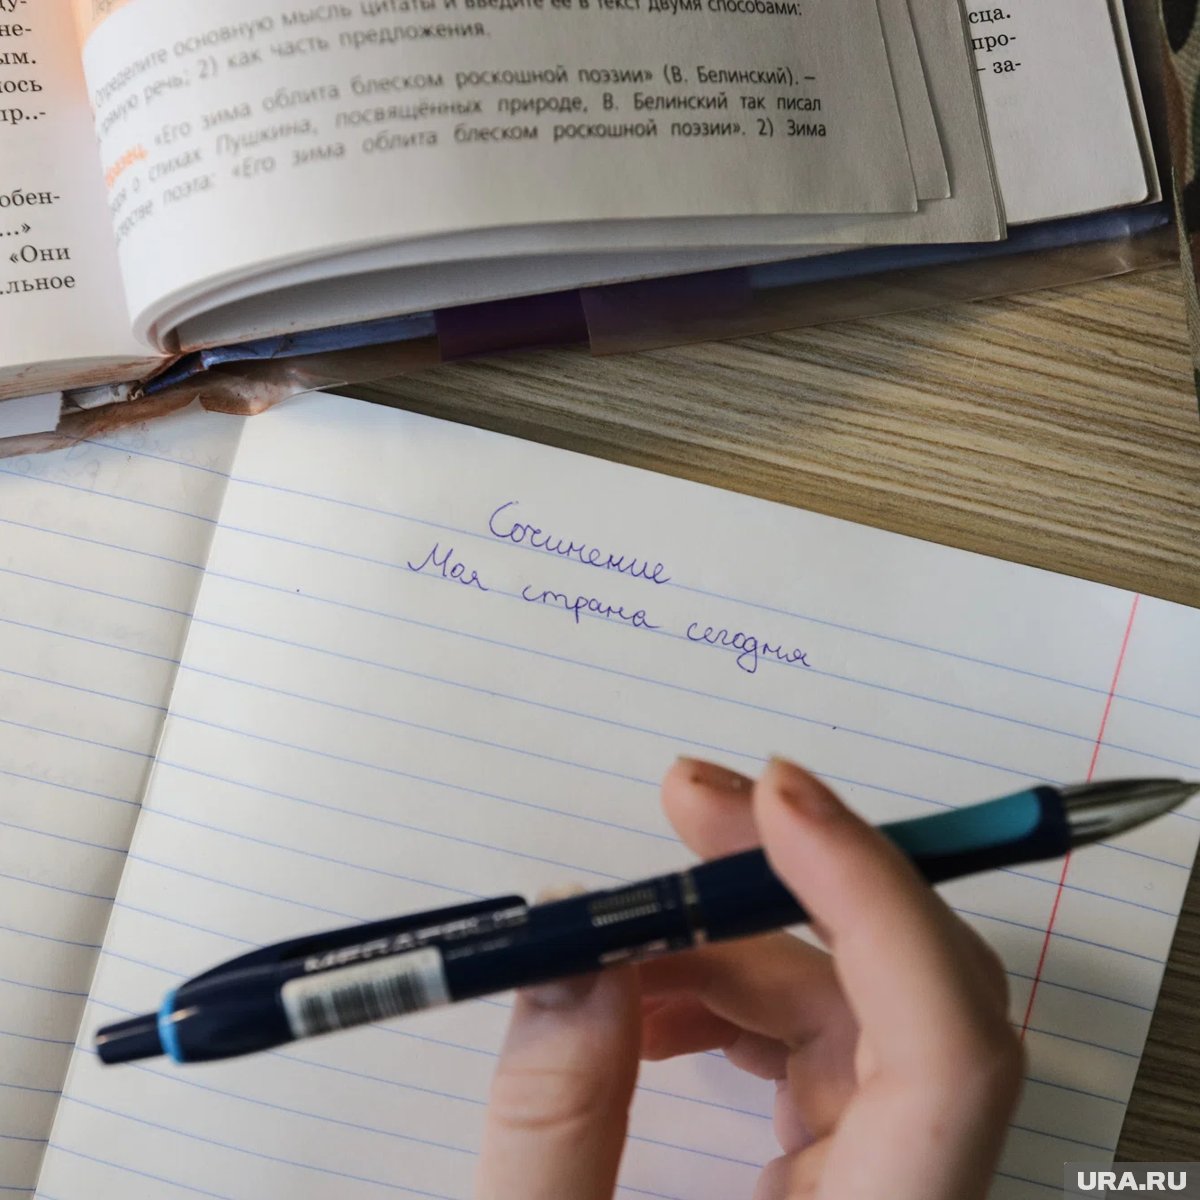 ым.
обен-
...»
«Они
..льное
определите основную мысль цитаты и введите её в текст двумя способами:
прямую речь; 2) как часть предложения.
«Его зима облита блеском роскошной поэзии» (В. Белинский). –
о стихах Пушкина, посвящённых природе, В. Белинский так писал
поэта: «Его зима облита блеском роскошной поэзии». 2) Зима
сца.
про-
– за-
Сочинение
Моя страна сегодня
URA.RU